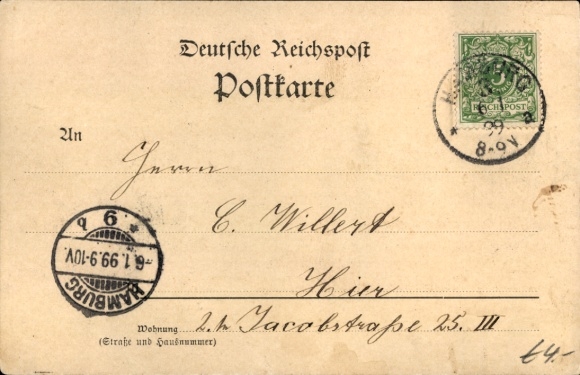 Deutsche Reichspost
Postkarte
HAMBURG
6 1
99
8-9V
a
REICHSPOST
An
Herrn
C. Willert
Hier
q 6 *
6.1.99.9-10V.
HAMBURG
Wohnung
(Straße und Hausnummer)
Jacobstraße 25. III
4.-